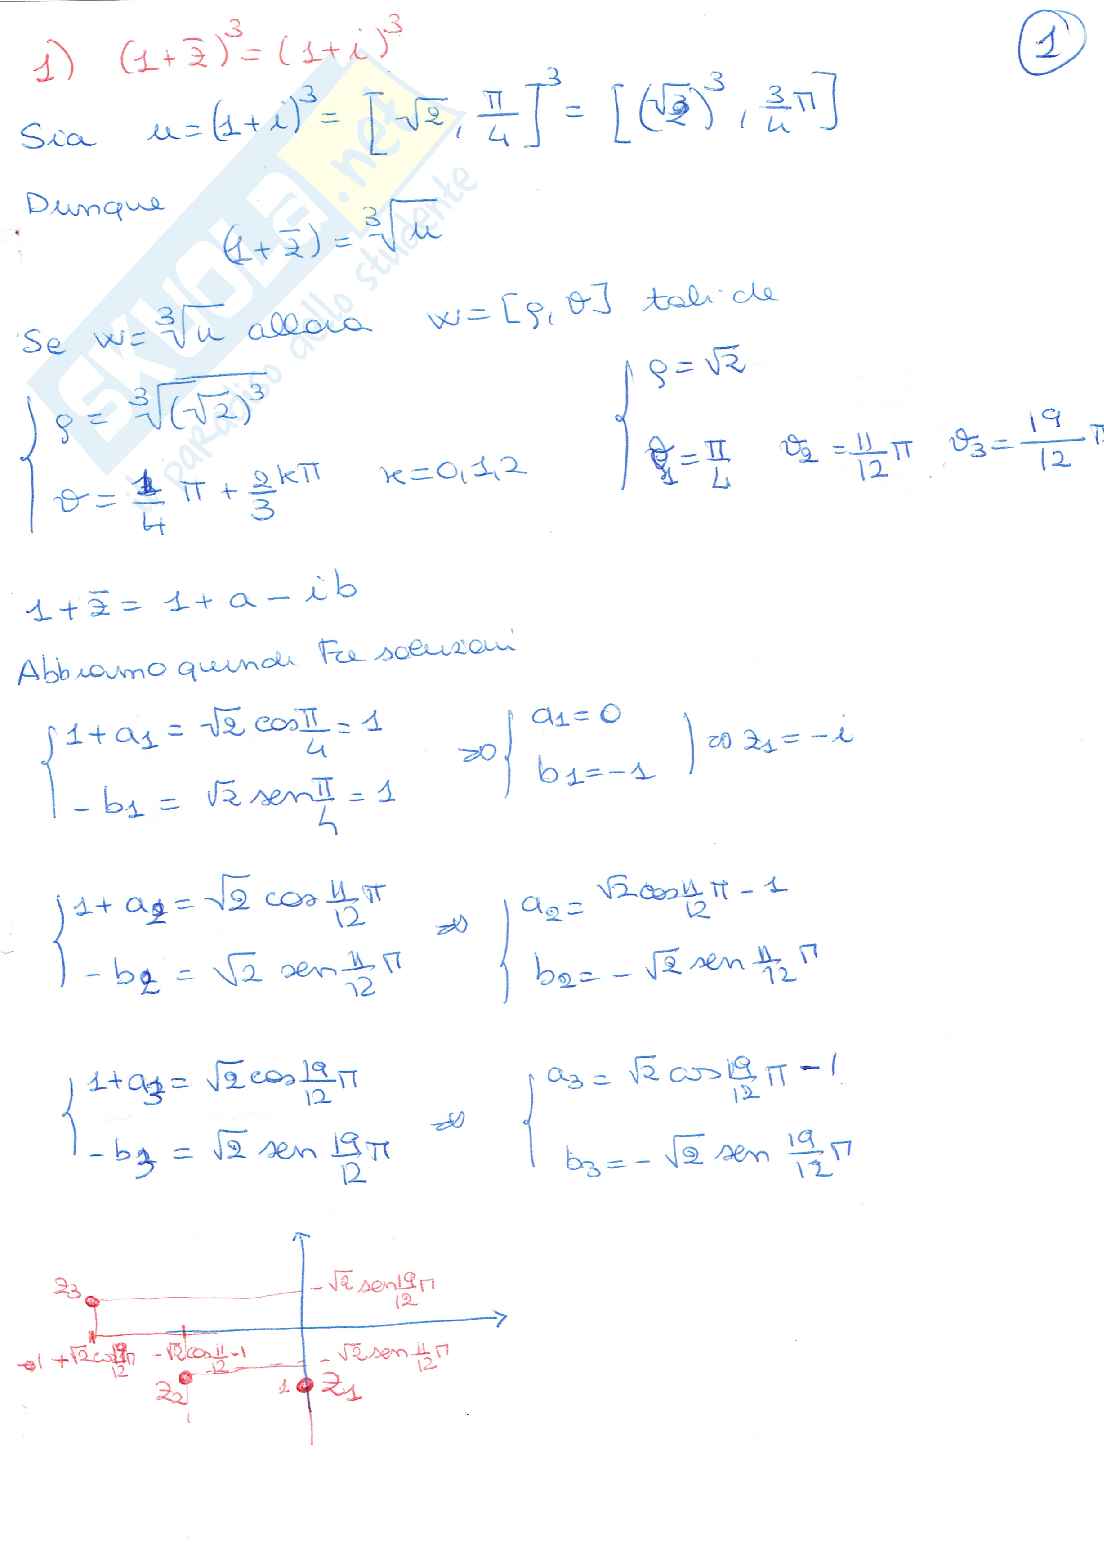 1
1) (1+z̄)³ = (1+i)³
Sia u=(1+i)³ = [√2, π/4]³ = [(√2)³, 3/4 π]
Dunque
(1+z̄) = ³√u
Se w=³√u allora w=[ρ, θ] tali che
{ ρ = ³√(√2)³
θ = 1/4 π + 2/3 kπ k=0,1,2
{ ρ=√2
θ1=π/4 θ2=11/12 π θ3=19/12 π
1+z̄ = 1+a-ib
Abbiamo quindi tre soluzioni
{ 1+a1 = √2 cos π/4 = 1 ⇒ { a1=0
-b1 = √2 sen π/4 = 1 b1=-1 } ⇒ z1=-i
{ 1+a2 = √2 cos 11/12 π ⇒ { a2= √2 cos 11/12 π - 1
-b2 = √2 sen 11/12 π b2= - √2 sen 11/12 π
{ 1+a3 = √2 cos 19/12 π ⇒ { a3 = √2 cos 19/12 π - 1
-b3 = √2 sen 19/12 π b3=- √2 sen 19/12 π
z3 -√2 sen 19/12 π
-1 +√2 cos 19/12 π -√2 cos 11/12 -1 -√2 sen 11/12 π
z2 1 z1
SKUOLA.net
il paradiso dello studente